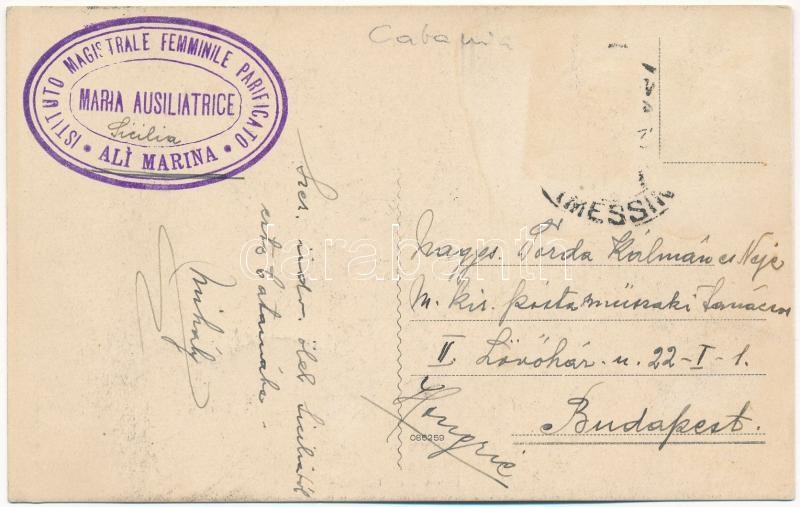 ISTITUTO MAGISTRALE FEMMINILE PARIFICATO
MARIA AUSILIATRICE
Sicilia
• ALÌ MARINA •
Catania
(MESSIN
Szer. üdv. ölel Siciliából
Mihály
Nagys. Torda Kálmán és Neje
M. kir. posta műszaki tanácsos
II. Lövőház u. 22-I-1.
Budapest.
Hongrie
086259
darabanth